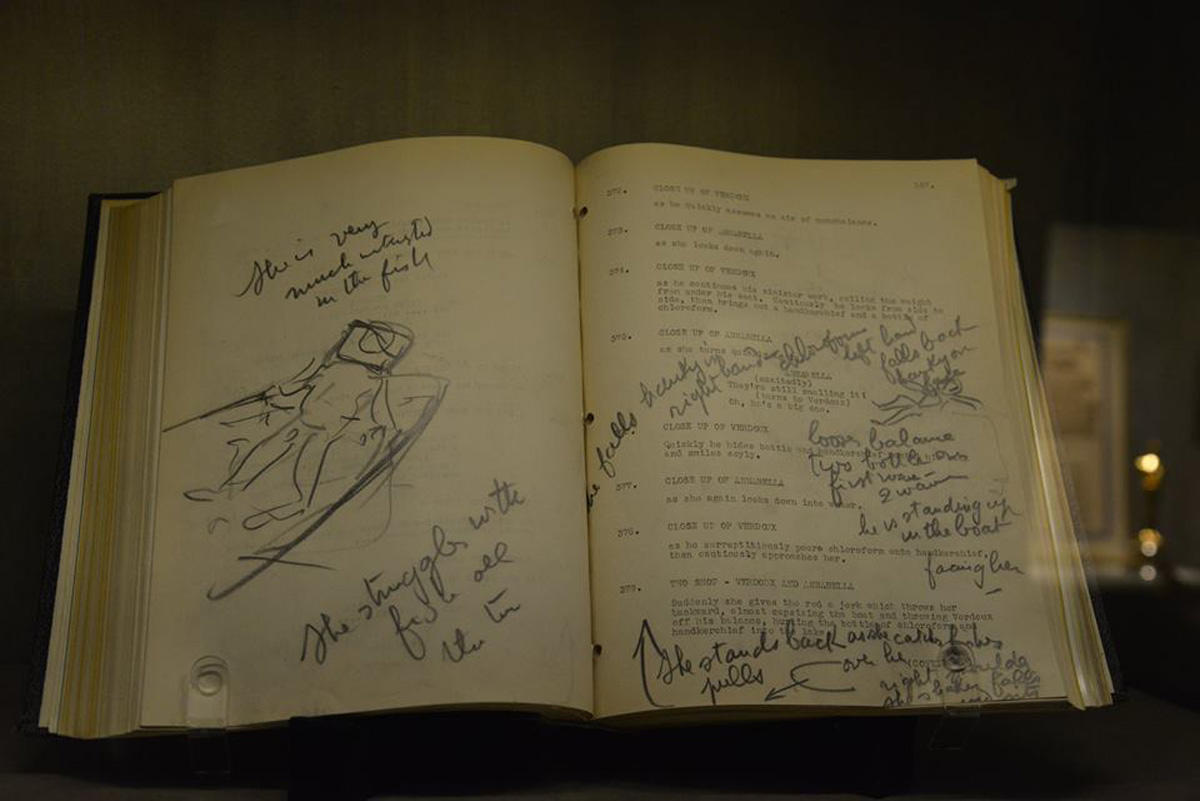 She is very
much intrested
in the fish
She struggles with
fish all
the
167.
372. CLOSE UP OF VERDOUX
as he quickly assumes an air of nonchalance.
373. CLOSE UP OF ANNABELLA
as she looks down again.
374. CLOSE UP OF VERDOUX
as he continues his sinister work, rolling the weight
from under his seat. Cautiously he looks from side to
side, then brings out a handkerchief and a bottle of
chloroform.
375. CLOSE UP OF ANNABELLA
as she turns
ANNABELLA
(excitedly)
They're still smelling it!
(turns to Verdoux)
Oh, he's a big one.
CLOSE UP OF VERDOUX
Quickly he hides bottle and handkerchief
and smiles coyly.
377. CLOSE UP OF ANNABELLA
as she again looks down into water.
378. CLOSE UP OF VERDOUX
as he surreptitiously pours chloroform onto handkerchief,
then cautiously approaches her.
379. TWO SHOT - VERDOUX AND ANNABELLA
Suddenly she gives the rod a jerk which throws her
backward, almost capsizing the boat and throwing Verdoux
off his balance, hurling the bottle of chloroform and
handkerchief into the lake.
he falls
right hand chloroform
left hand
falls back
looses balance
two bottles
first
2
he is standing up
in the boat
facing her
She stands back as she catches fishes
pulls
over he
right
falls